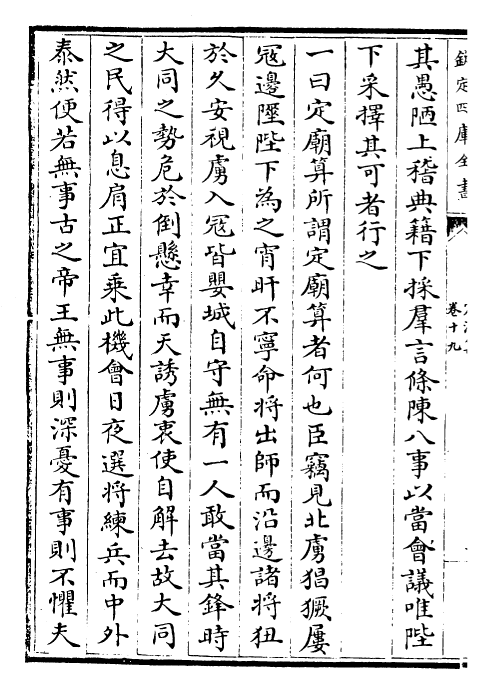 欽定四庫全書
卷十九
其愚陋上稽典籍下採羣言條陳八事以當會議唯陛
下采擇其可者行之
一曰定廟算所謂定廟算者何也臣竊見北虜猖獗屢
冦邊陲陛下為之宵旰不寧命將出師而沿邊諸將狃
於久安視虜入冦皆嬰城自守無有一人敢當其鋒時
大同之勢危於倒懸幸而天誘虜衷使自解去故大同
之民得以息肩正宜乘此機會日夜選將練兵而中外
泰然便若無事古之帝王無事則深憂有事則不懼夫